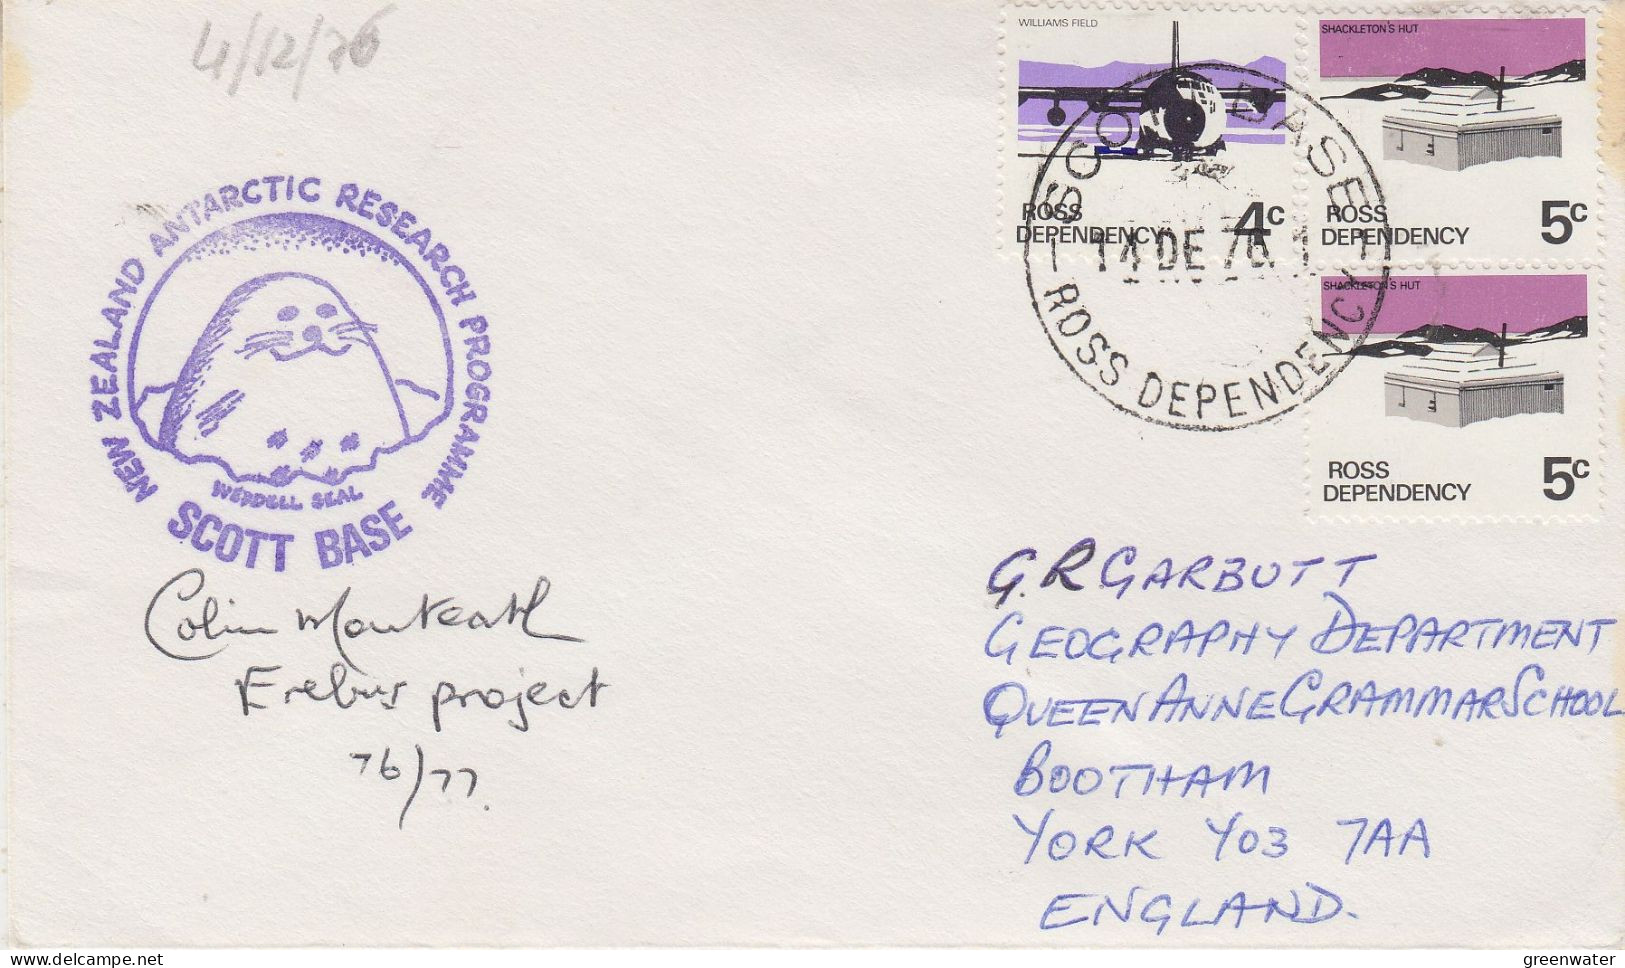 4/12/76
WILLIAMS FIELD
ROSS
DEPENDENCY
4c
SHACKLETON'S HUT
ROSS
DEPENDENCY
5c
SHACKLETON'S HUT
ROSS
DEPENDENCY
5c
SCOTT BASE
14 DE 76
ROSS DEPENDENCY
NEW ZEALAND ANTARCTIC RESEARCH PROGRAMME
WEDDELL SEAL
SCOTT BASE
Colin Monteath
Erebus project
76/77.
G.R GARBUTT
GEOGRAPHY DEPARTMENT
QUEEN ANNE GRAMMAR SCHOOL
BOOTHAM
YORK YO3 7AA
ENGLAND.
greenwater